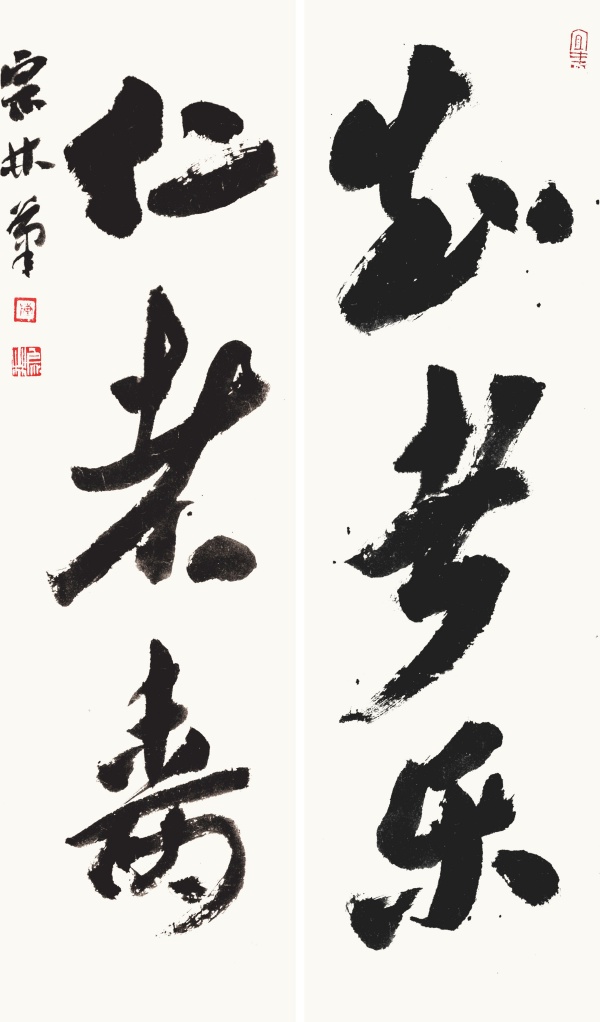 知者乐
仁者寿
宗林笔